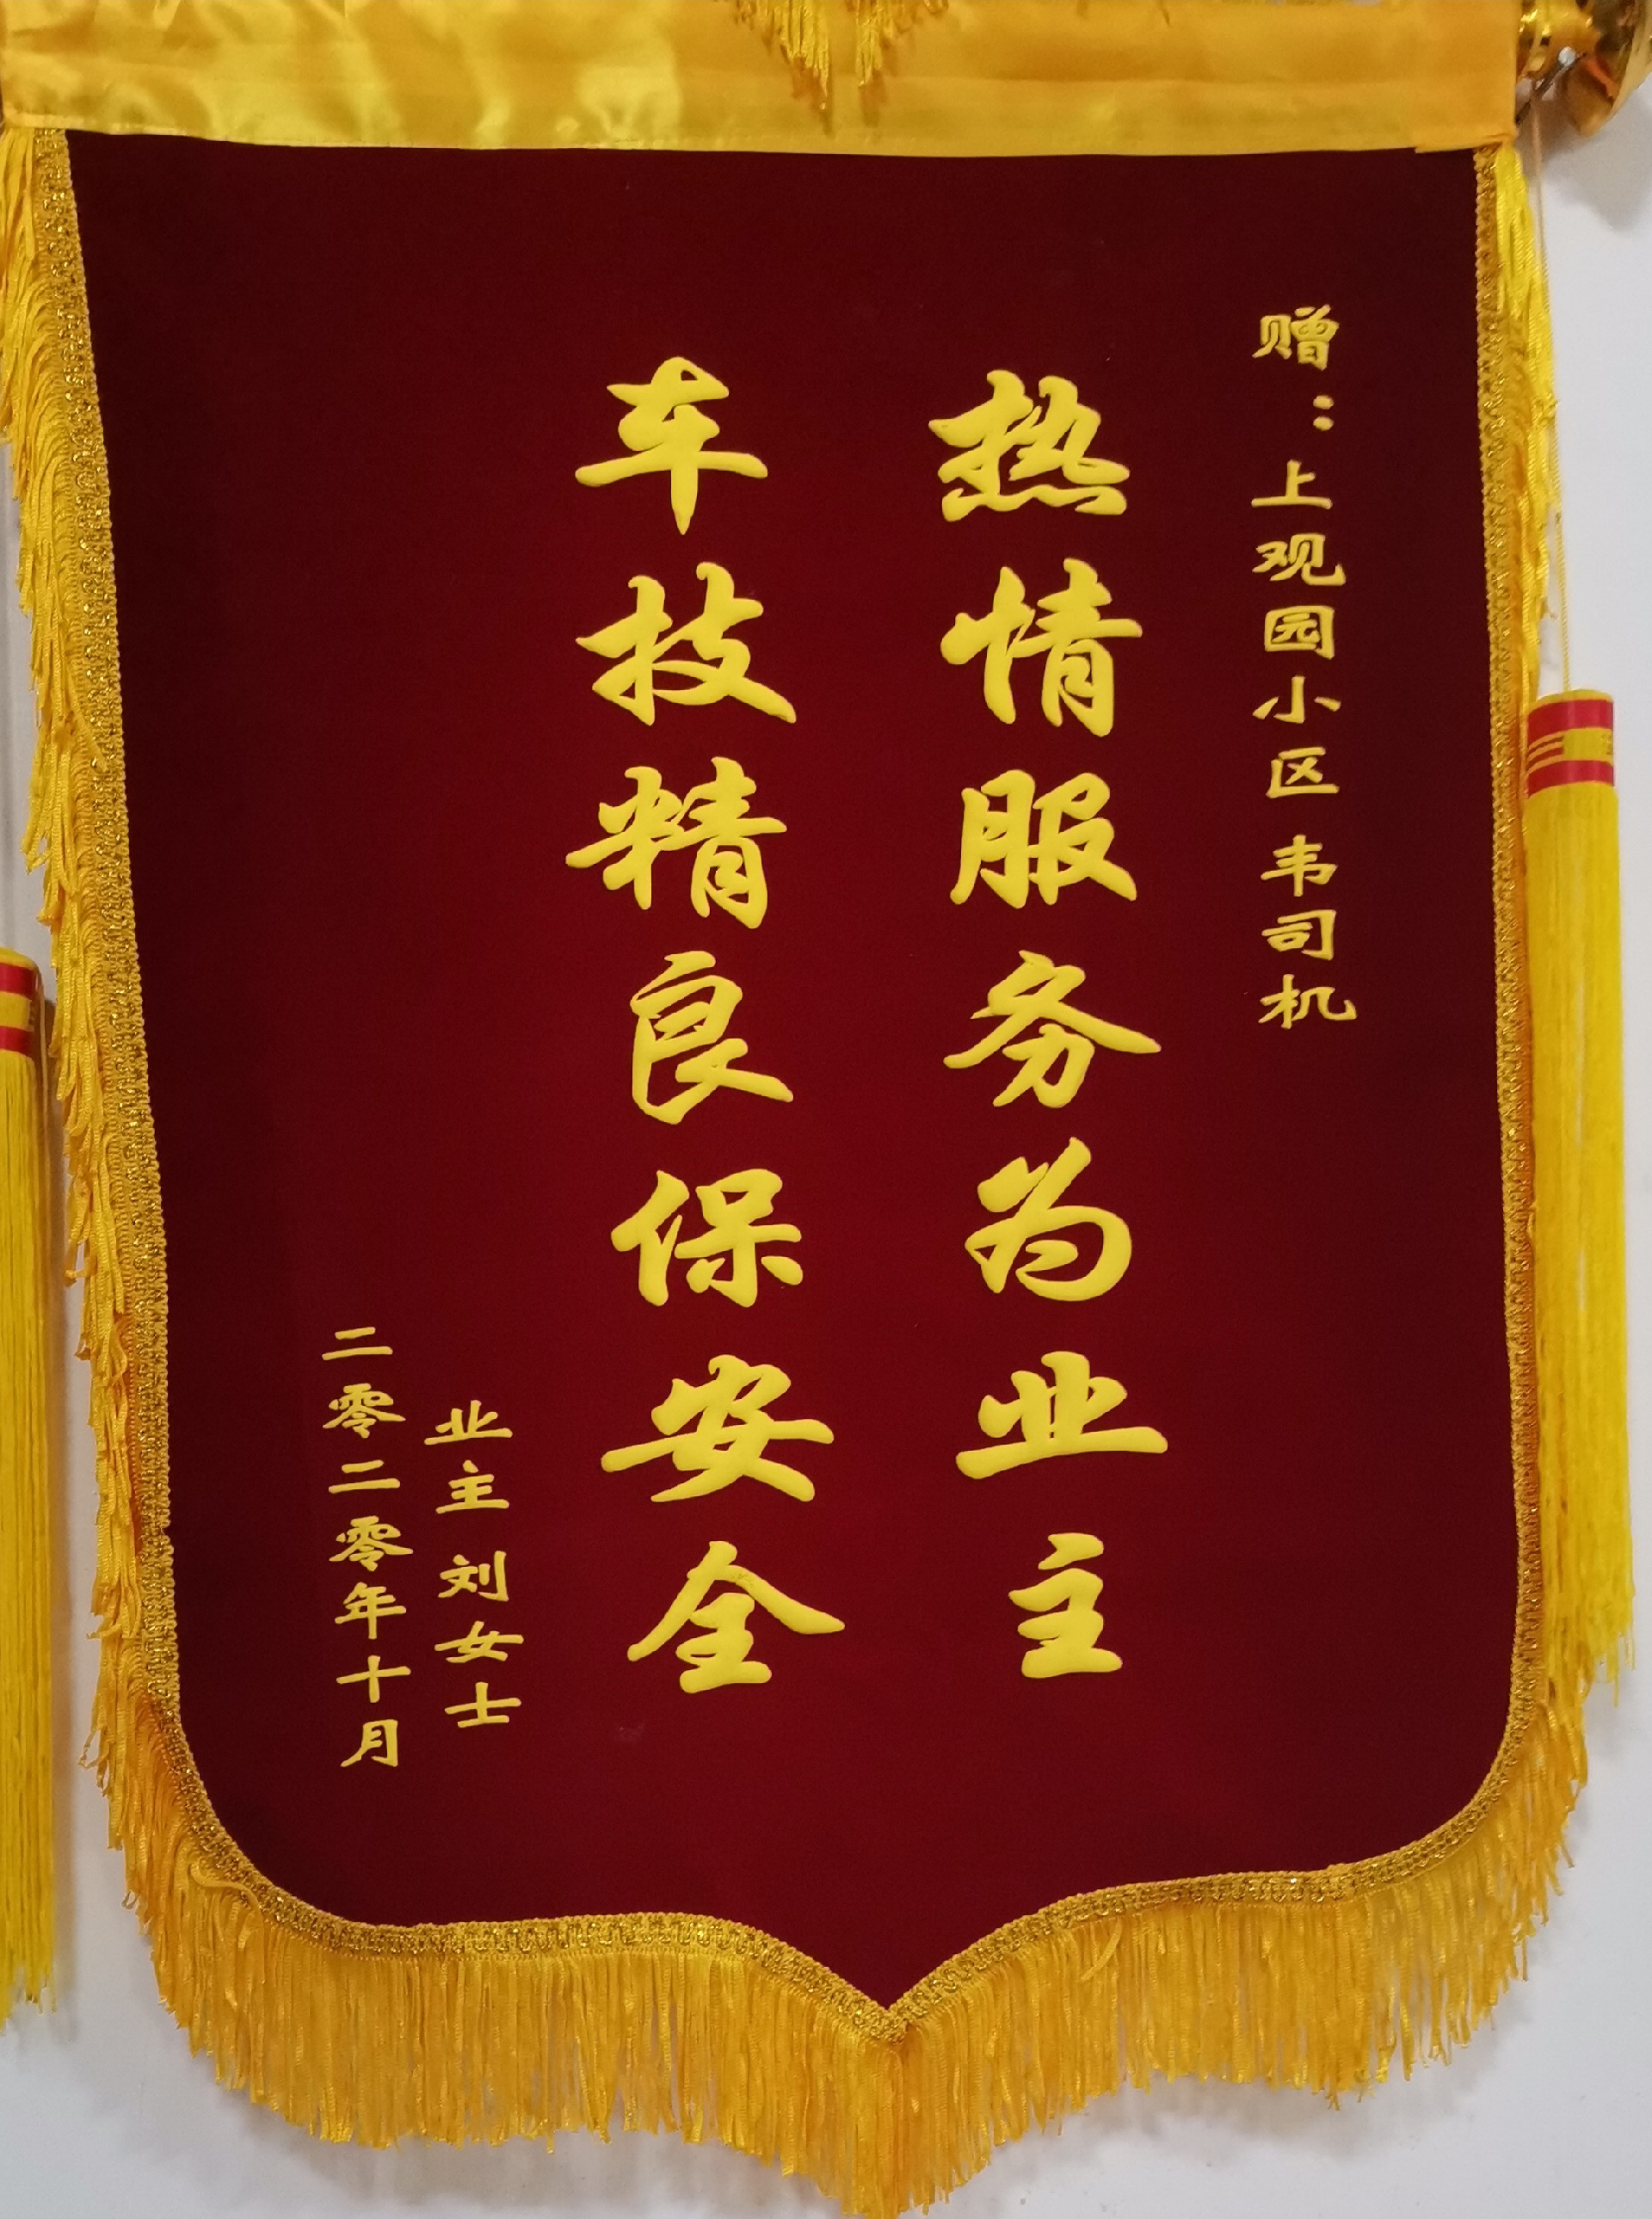 赠：上观园小区韦司机
热情服务为业主
车技精良保安全
业主刘女士
二零二零年十月